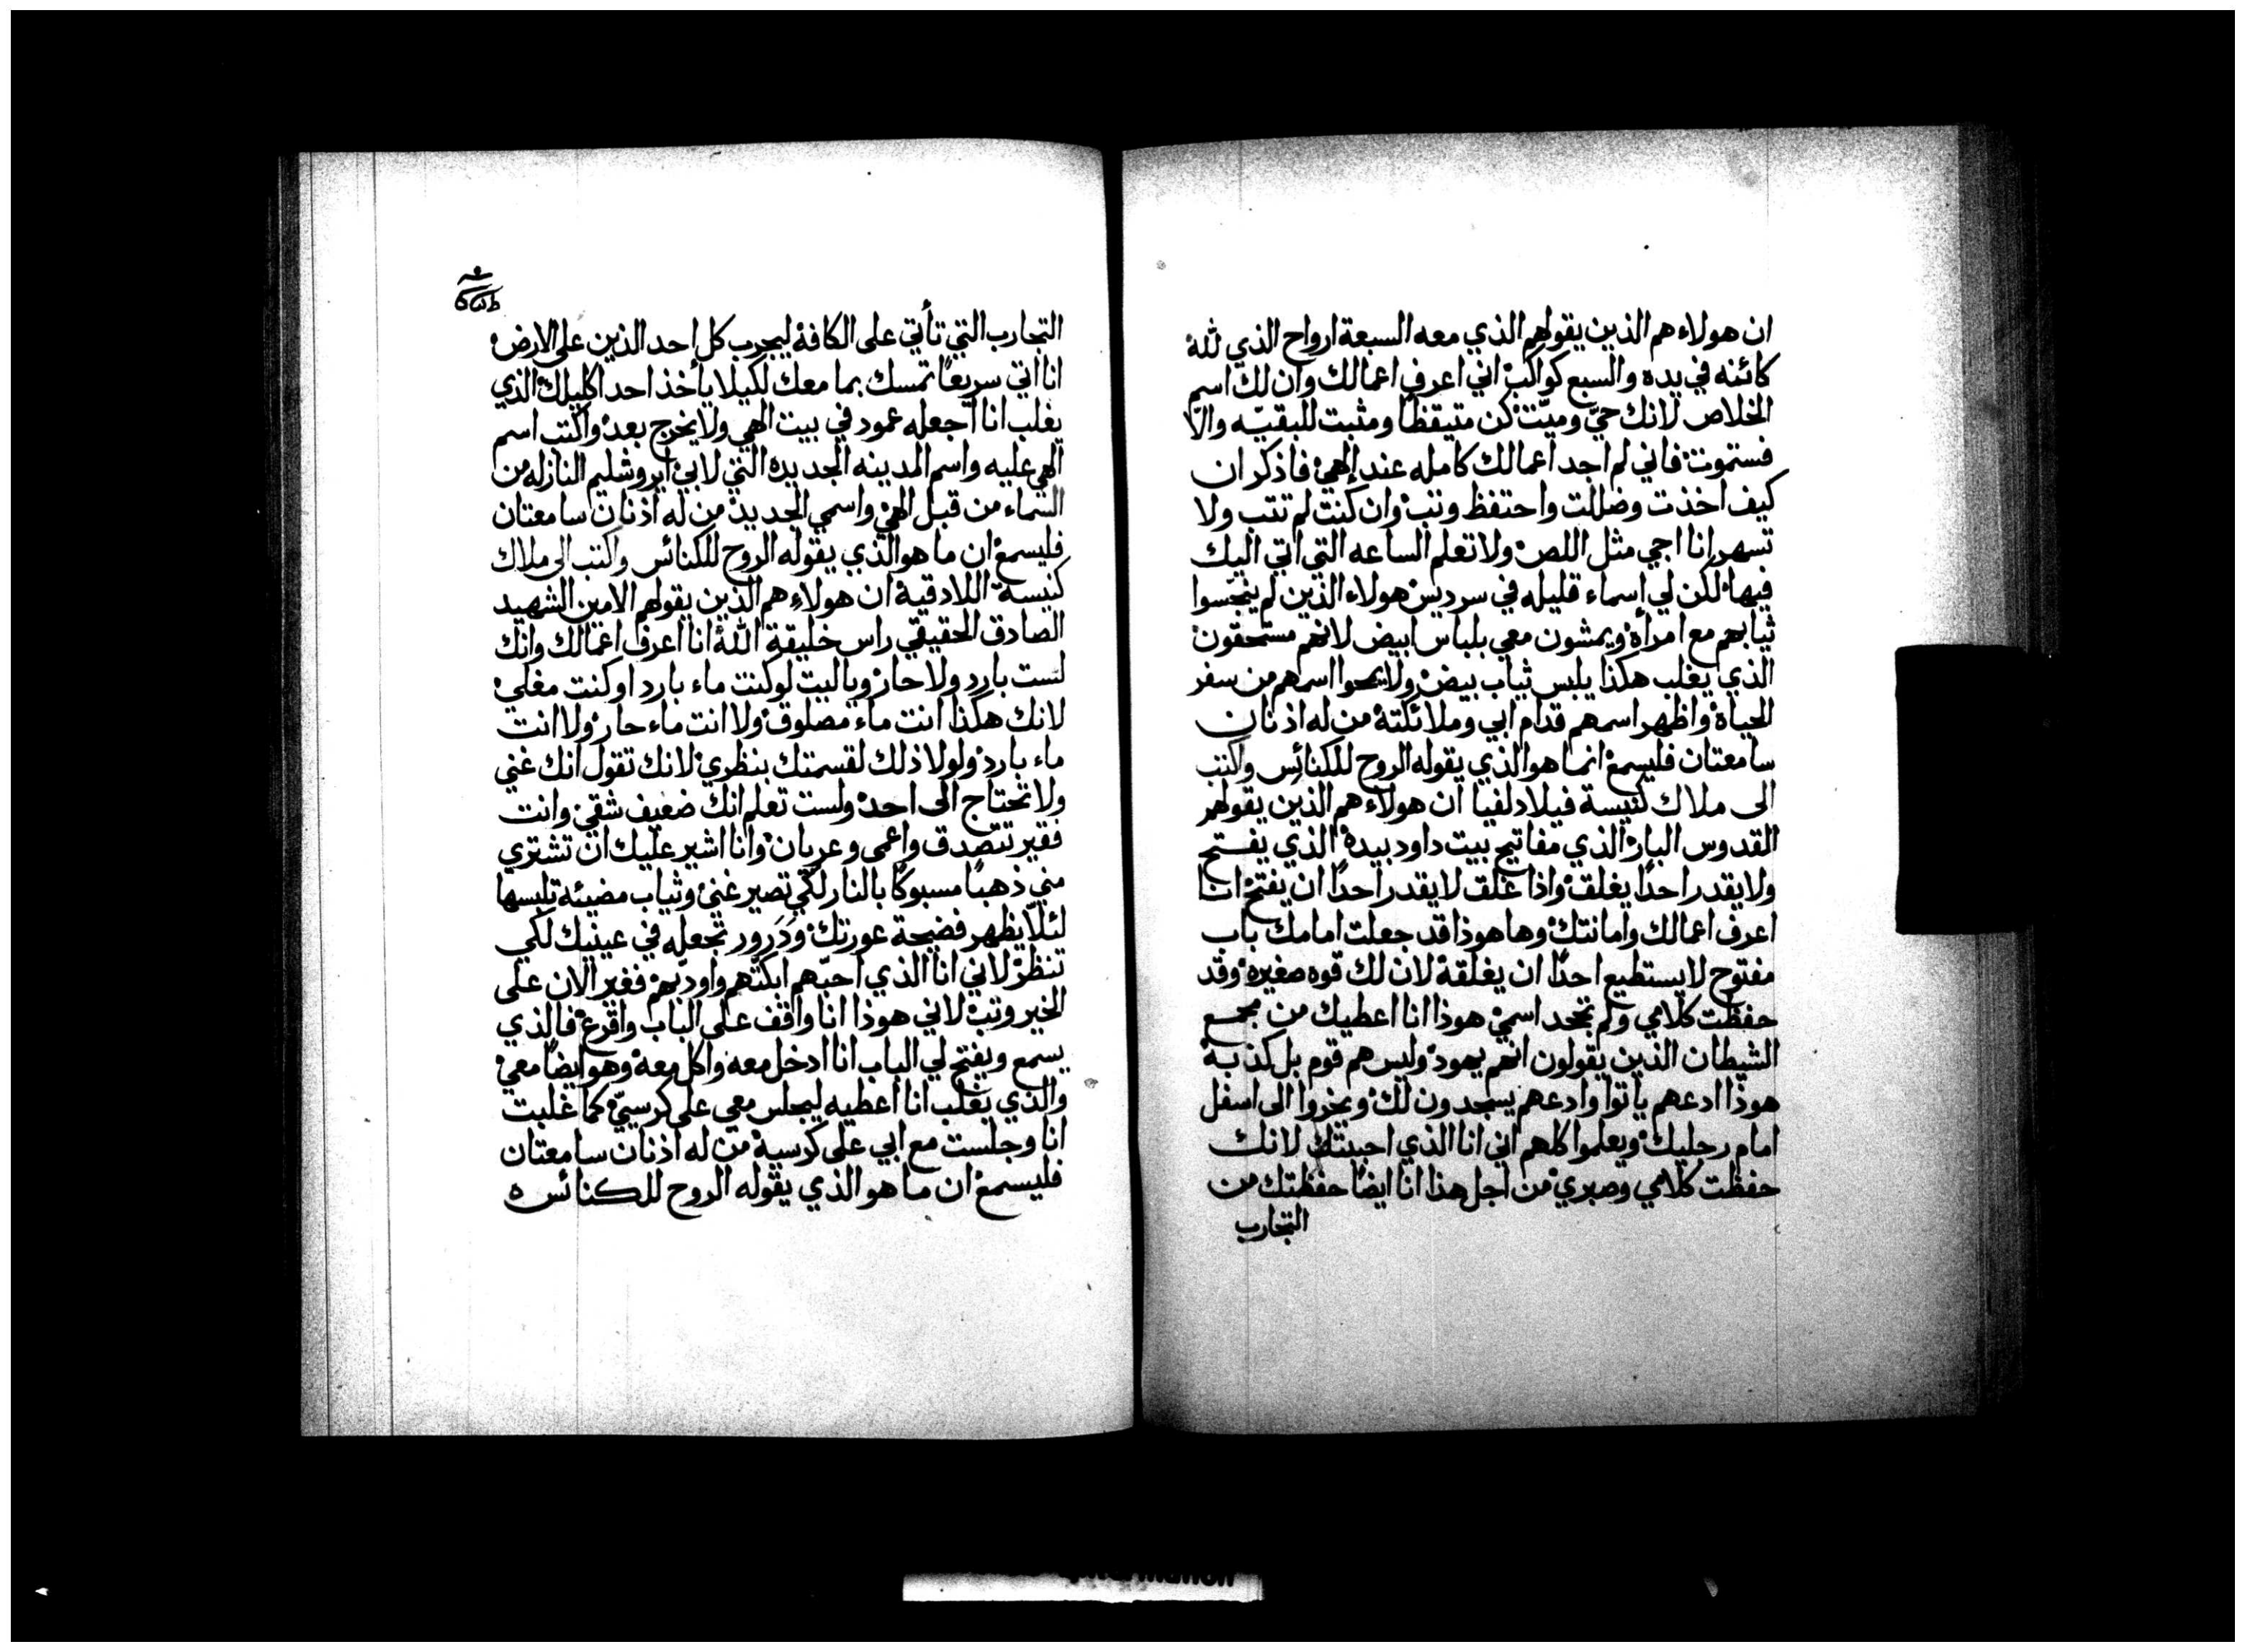 ان هولاء هم الذين يقولهم الذي معه السبعة ارواح الذي لله
كائنه في يده والسبع كواكب اني اعرف اعمالك وان لك اسم
الخلاص لانك حيّ وميّت كن متيقظا ومثبت للبقيّه والّا
فستموت فاني لم اجد اعمالك كامله عند الهي فاذكر ان
كيف اخذت وضللت واحتفظ وتب وان كنت لم تتب ولا
تسهر انا اجي مثل اللص ولا تعلم الساعه التي اتي اليك
فيها لكن لي اسماء قليله في سرديس هولاء الذين لم ينجّسوا
ثيابهم مع امرأة ويمشون معي بلباس ابيض لانهم مستحقون
الذي يغلب هكذا يلبس ثياب بيض ولا يمحوا اسمهم من سفر
الحياة واظهر اسمهم قدام ابي وملائكته من له اذنان
سامعتان فليسمع انما هو الذي يقوله الروح للكنائس واكتب
الى ملاك كنيسة فيلادلفيا ان هولاء هم الذين يقولهم
القدوس البار الذي مفاتيح بيت داود بيده الذي يفتح
ولا يقدر احدًا يغلق واذا غلق لا يقدر احدًا ان يفتح انا
اعرف اعمالك وامانتك وها هوذا قد جعلت امامك باب
مفتوح لا يستطيع احدًا ان يغلقه لان لك قوه صغيره وقد
حفظت كلامي ولم تجحد اسمي هوذا انا اعطيك من مجمع
الشيطان الذين يقولون انهم يهود وليس هم قوم بل كذبة
هوذا ادعهم ياتوا وادعهم يسجدون لك ويخروا الى اسفل
امام رجليك ويعلموا كلهم اني انا الذي احببتك لانك
حفظت كلامي وصبري من اجل هذا انا ايضًا حفظتك من
التجارب
التجارب التي تأتي على الكافة ليجرب كل احد الذين على الارض
انا اتي سريعًا تمسك بما معك لكيلا يأخذ احد اكليلك الذي
يغلب انا اجعله عمود في بيت الهي ولا يخرج بعد واكتب اسم
الهي عليه واسم المدينه الجديده التي لابي ايروشليم النازله من
السماء من قبل الهي واسمي الجديد من له اذنان سامعتان
فليسمع ان ما هو الذي يقوله الروح للكنائس واكتب الى ملاك
كنيسة اللادقية ان هولاء هم الذين يقولهم الامين الشهيد
الصادق الحقيقي راس خليقة الله انا اعرف اعمالك وانك
لست بارد ولا حار ويا ليت لو كنت ماء بارد او كنت مغلي
لانك هكذا انت ماء مصلوق ولا انت ماء حار ولا انت
ماء بارد ولولا ذلك لقسمتك بنظري لانك تقول انك غني
ولا تحتاج الى احد ولست تعلم انك ضعيف شقي وانت
فقير تتصدق واعمى وعريان وانا اشير عليك ان تشتري
مني ذهبًا مسبوكًا بالنار لكي تصير غني وثياب مضيئه تلبسها
لئلّا يظهر فضيحة عورتك وذرور تجعله في عينيك لكي
تنظر لاني انا الذي احبّهم ابكّتهم واودّبهم فغير الان على
الخير وتب لاني هوذا انا واقف على الباب واقرع فالذي
يسمع ويفتح لي الباب انا ادخل معه واكل معه وهو ايضًا معي
والذي يغلب انا اعطيه ليجلس معي على كرسيّ كما غلبت
انا وجلست مع ابي على كرسيه من له اذنان سامعتان
فليسمع ان ما هو الذي يقوله الروح للكنائس ه